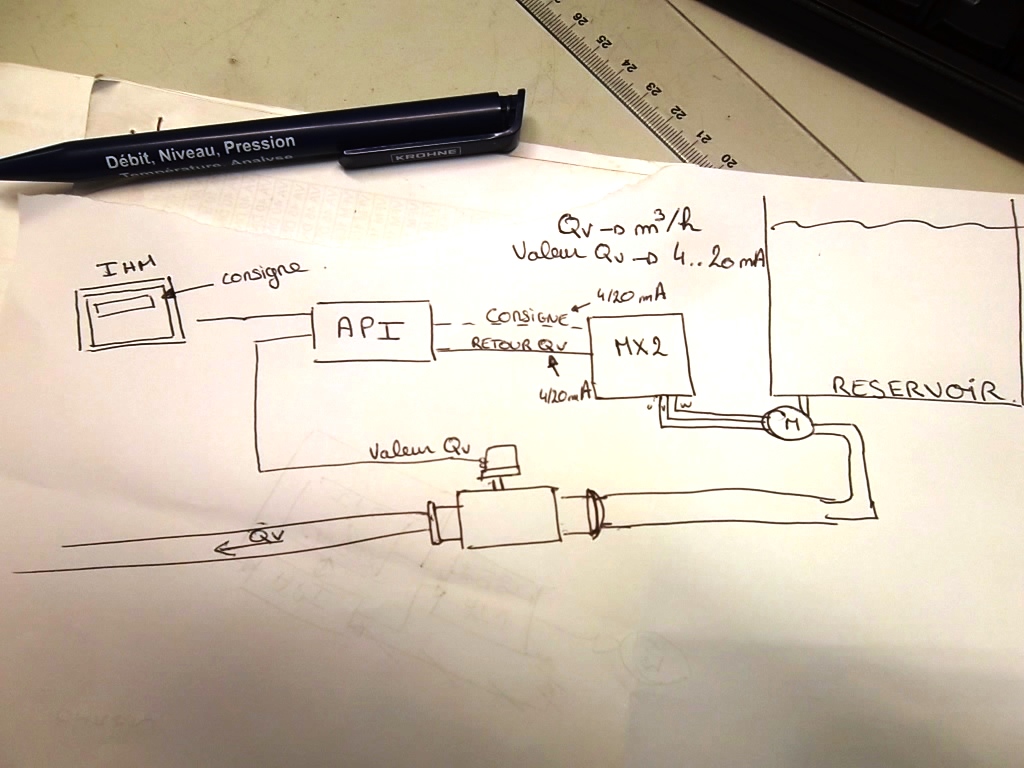 26
25
24
23
22
21
20
Débit, Niveau, Pression
Température, Analyse
KROHNE
Qv → m³/h
Valeur Qv → 4..20mA
IHM
consigne
4/20 mA
API
CONSIGNE
RETOUR QV
MX2
4/20mA
RESERVOIR.
U V W
M
Valeur Qv
QV